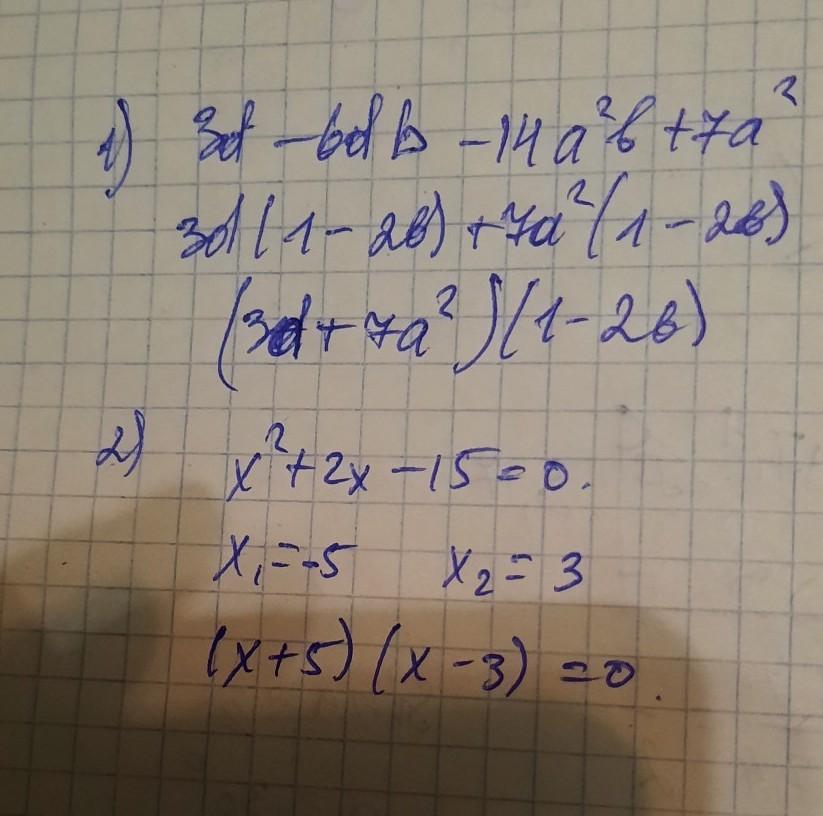 1) 3d - 6db - 14a²b + 7a²
3d(1 - 2b) + 7a²(1 - 2b)
(3d + 7a²)(1 - 2b)
2) x² + 2x - 15 = 0.
x₁ = -5 x₂ = 3
(x + 5)(x - 3) = 0.